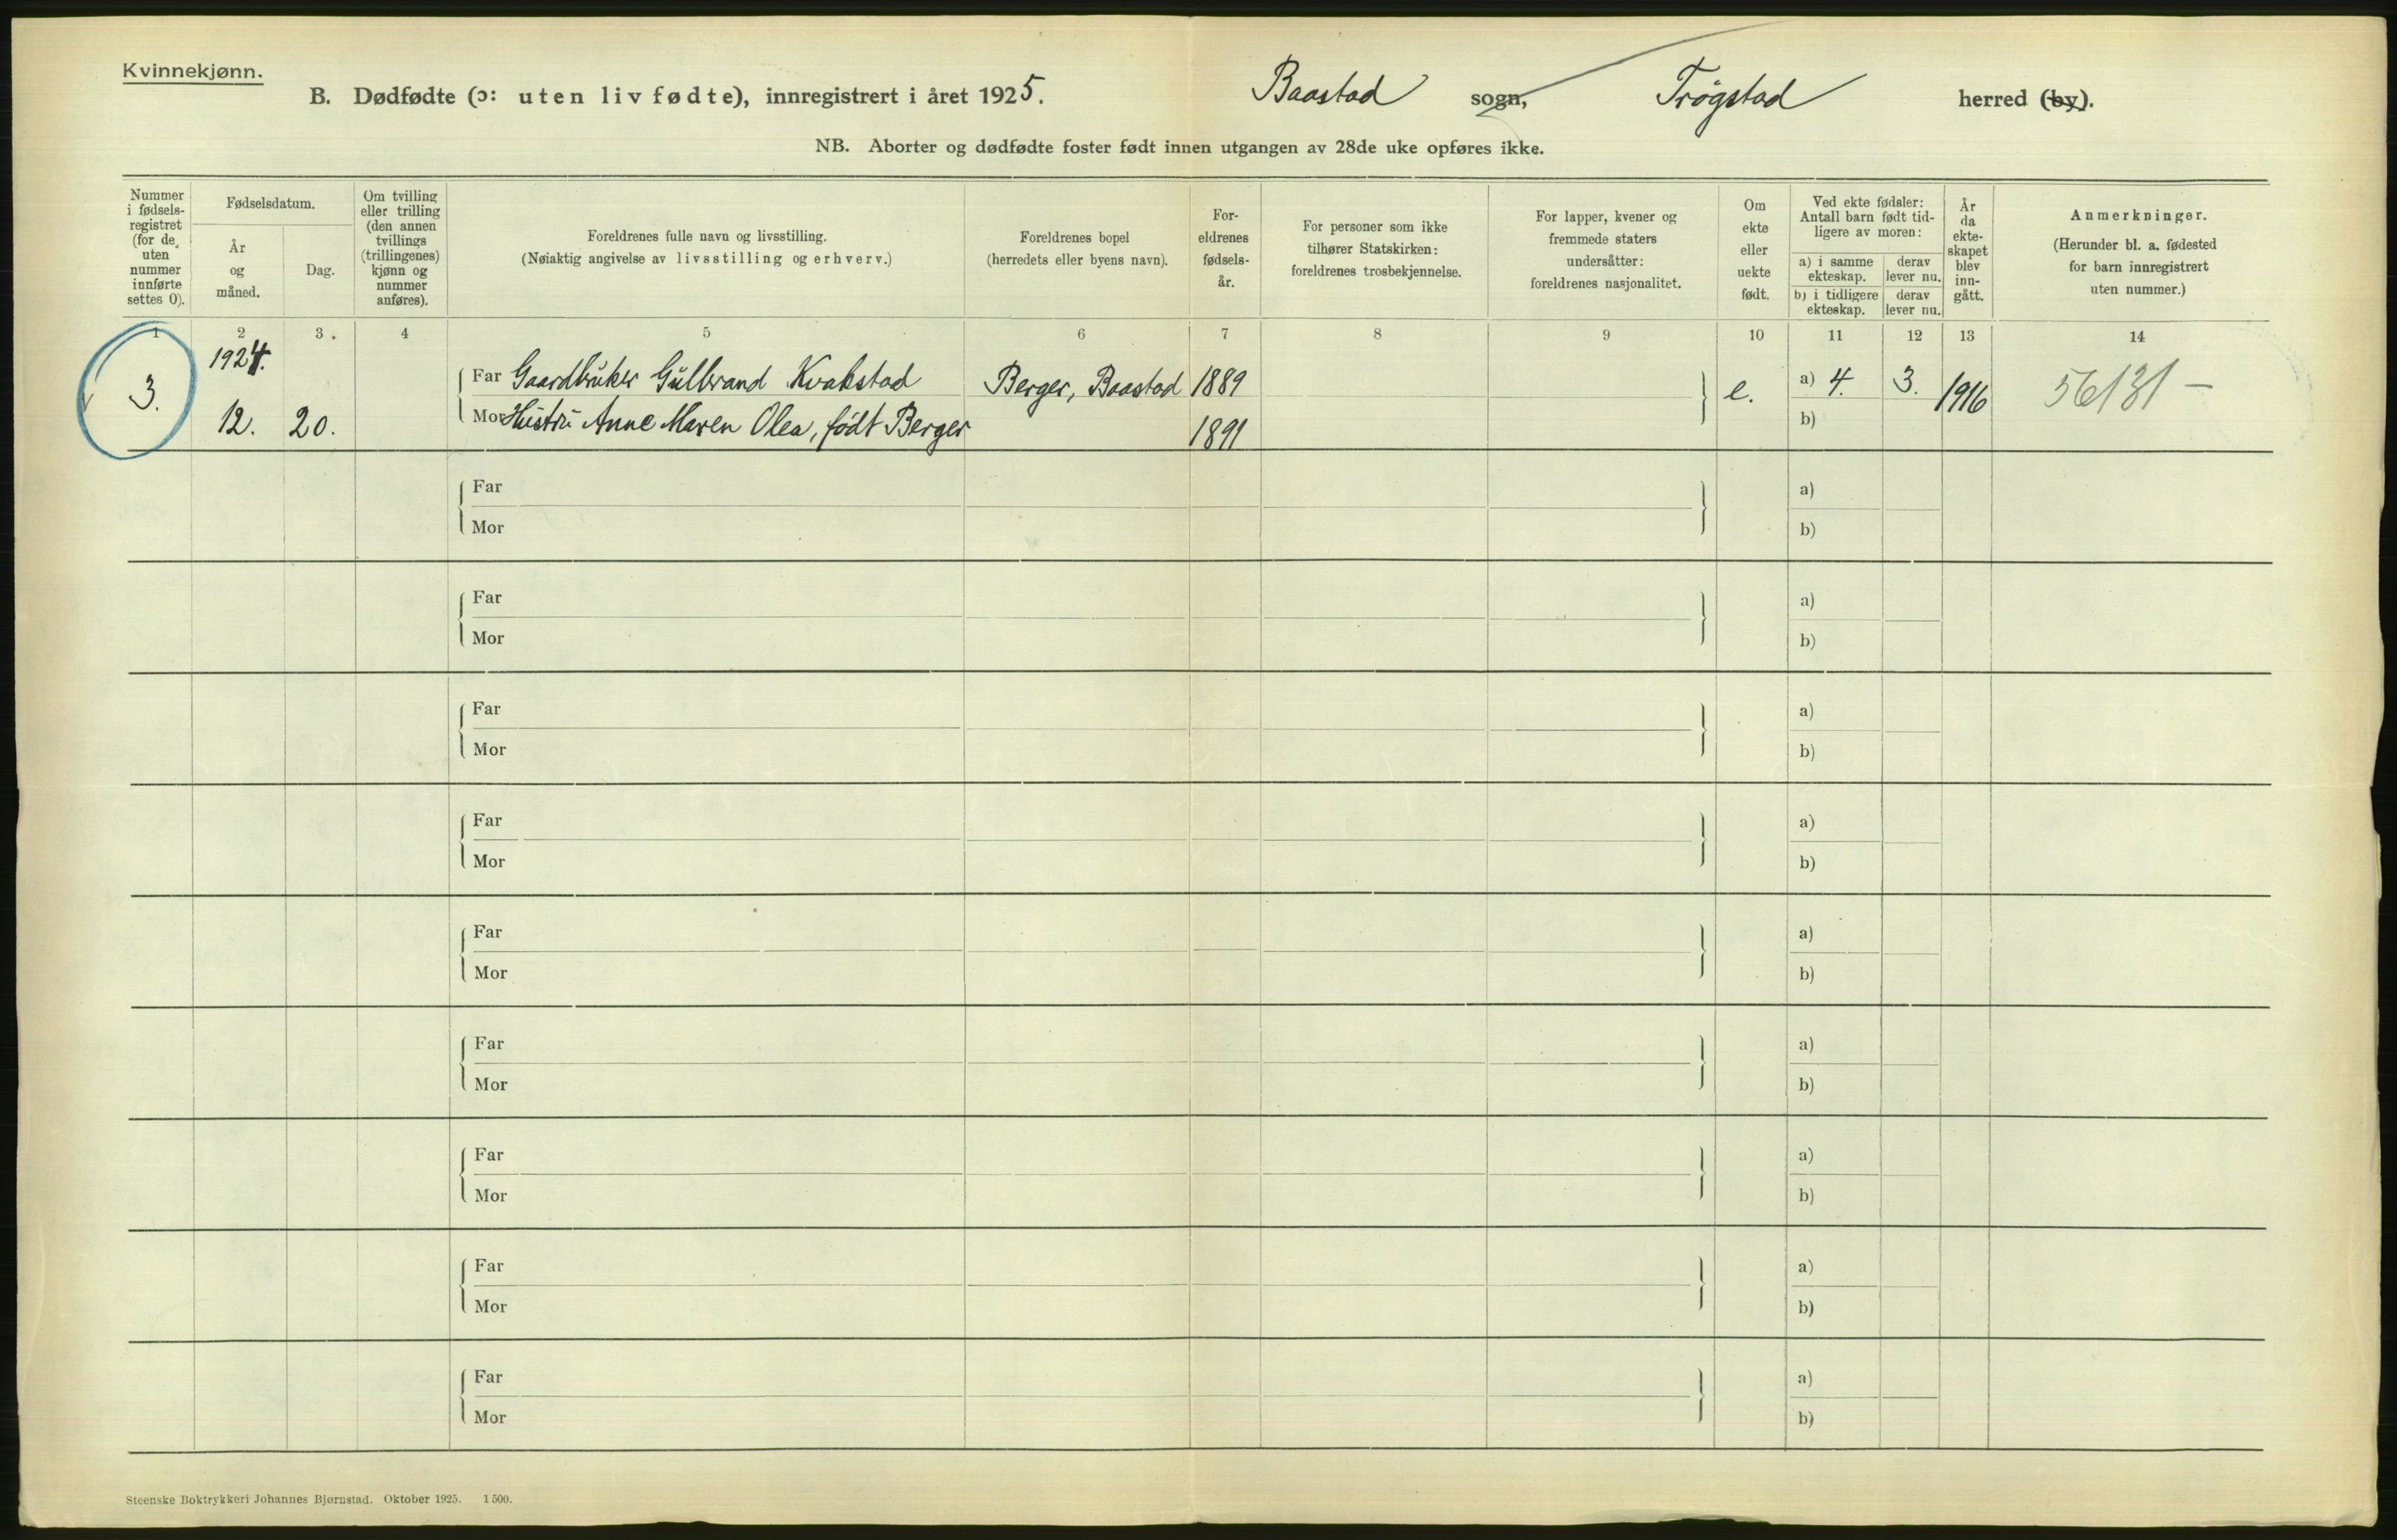 Kvinnekjønn.
B. Dødfødte (ɔ: uten liv fødte), innregistrert i året 1925. Baastad sogn, Trøgstad herred (by).
NB. Aborter og dødfødte foster født innen utgangen av 28de uke opføres ikke.
Nummer i fødsels-registret (for de uten nummer innførte settes 0).
Fødselsdatum.
År og måned.
Dag.
Om tvilling eller trilling (den annen tvillings (trillingenes) kjønn og nummer anføres).
Foreldrenes fulle navn og livsstilling.
(Nøiaktig angivelse av livsstilling og erhverv.)
Foreldrenes bopel
(herredets eller byens navn).
For-eldrenes fødsels-år.
For personer som ikke tilhører Statskirken: foreldrenes trosbekjennelse.
For lapper, kvener og fremmede staters undersåtter: foreldrenes nasjonalitet.
Om ekte eller uekte født.
Ved ekte fødsler: Antall barn født tid-ligere av moren:
a) i samme ekteskap.
derav lever nu.
b) i tidligere ekteskap.
derav lever nu.
År da ekte-skapet blev inn-gått.
Anmerkninger.
(Herunder bl. a. fødested for barn innregistrert uten nummer.)
1 2 3 4 5 6 7 8 9 10 11 12 13 14
1924.
3. 12. 20.
Far Gaardbruker Gullbrand Kvakstad Berger, Baastad 1889 e. a) 4. 3. 1916 56131 –
Mor Hustru Anne Maren Olea, født Berger 1891 b)
Far a)
Mor b)
Far a)
Mor b)
Far a)
Mor b)
Far a)
Mor b)
Far a)
Mor b)
Far a)
Mor b)
Far a)
Mor b)
Far a)
Mor b)
Far a)
Mor b)
Steenske Boktrykkeri Johannes Bjørnstad. Oktober 1925. 1500.